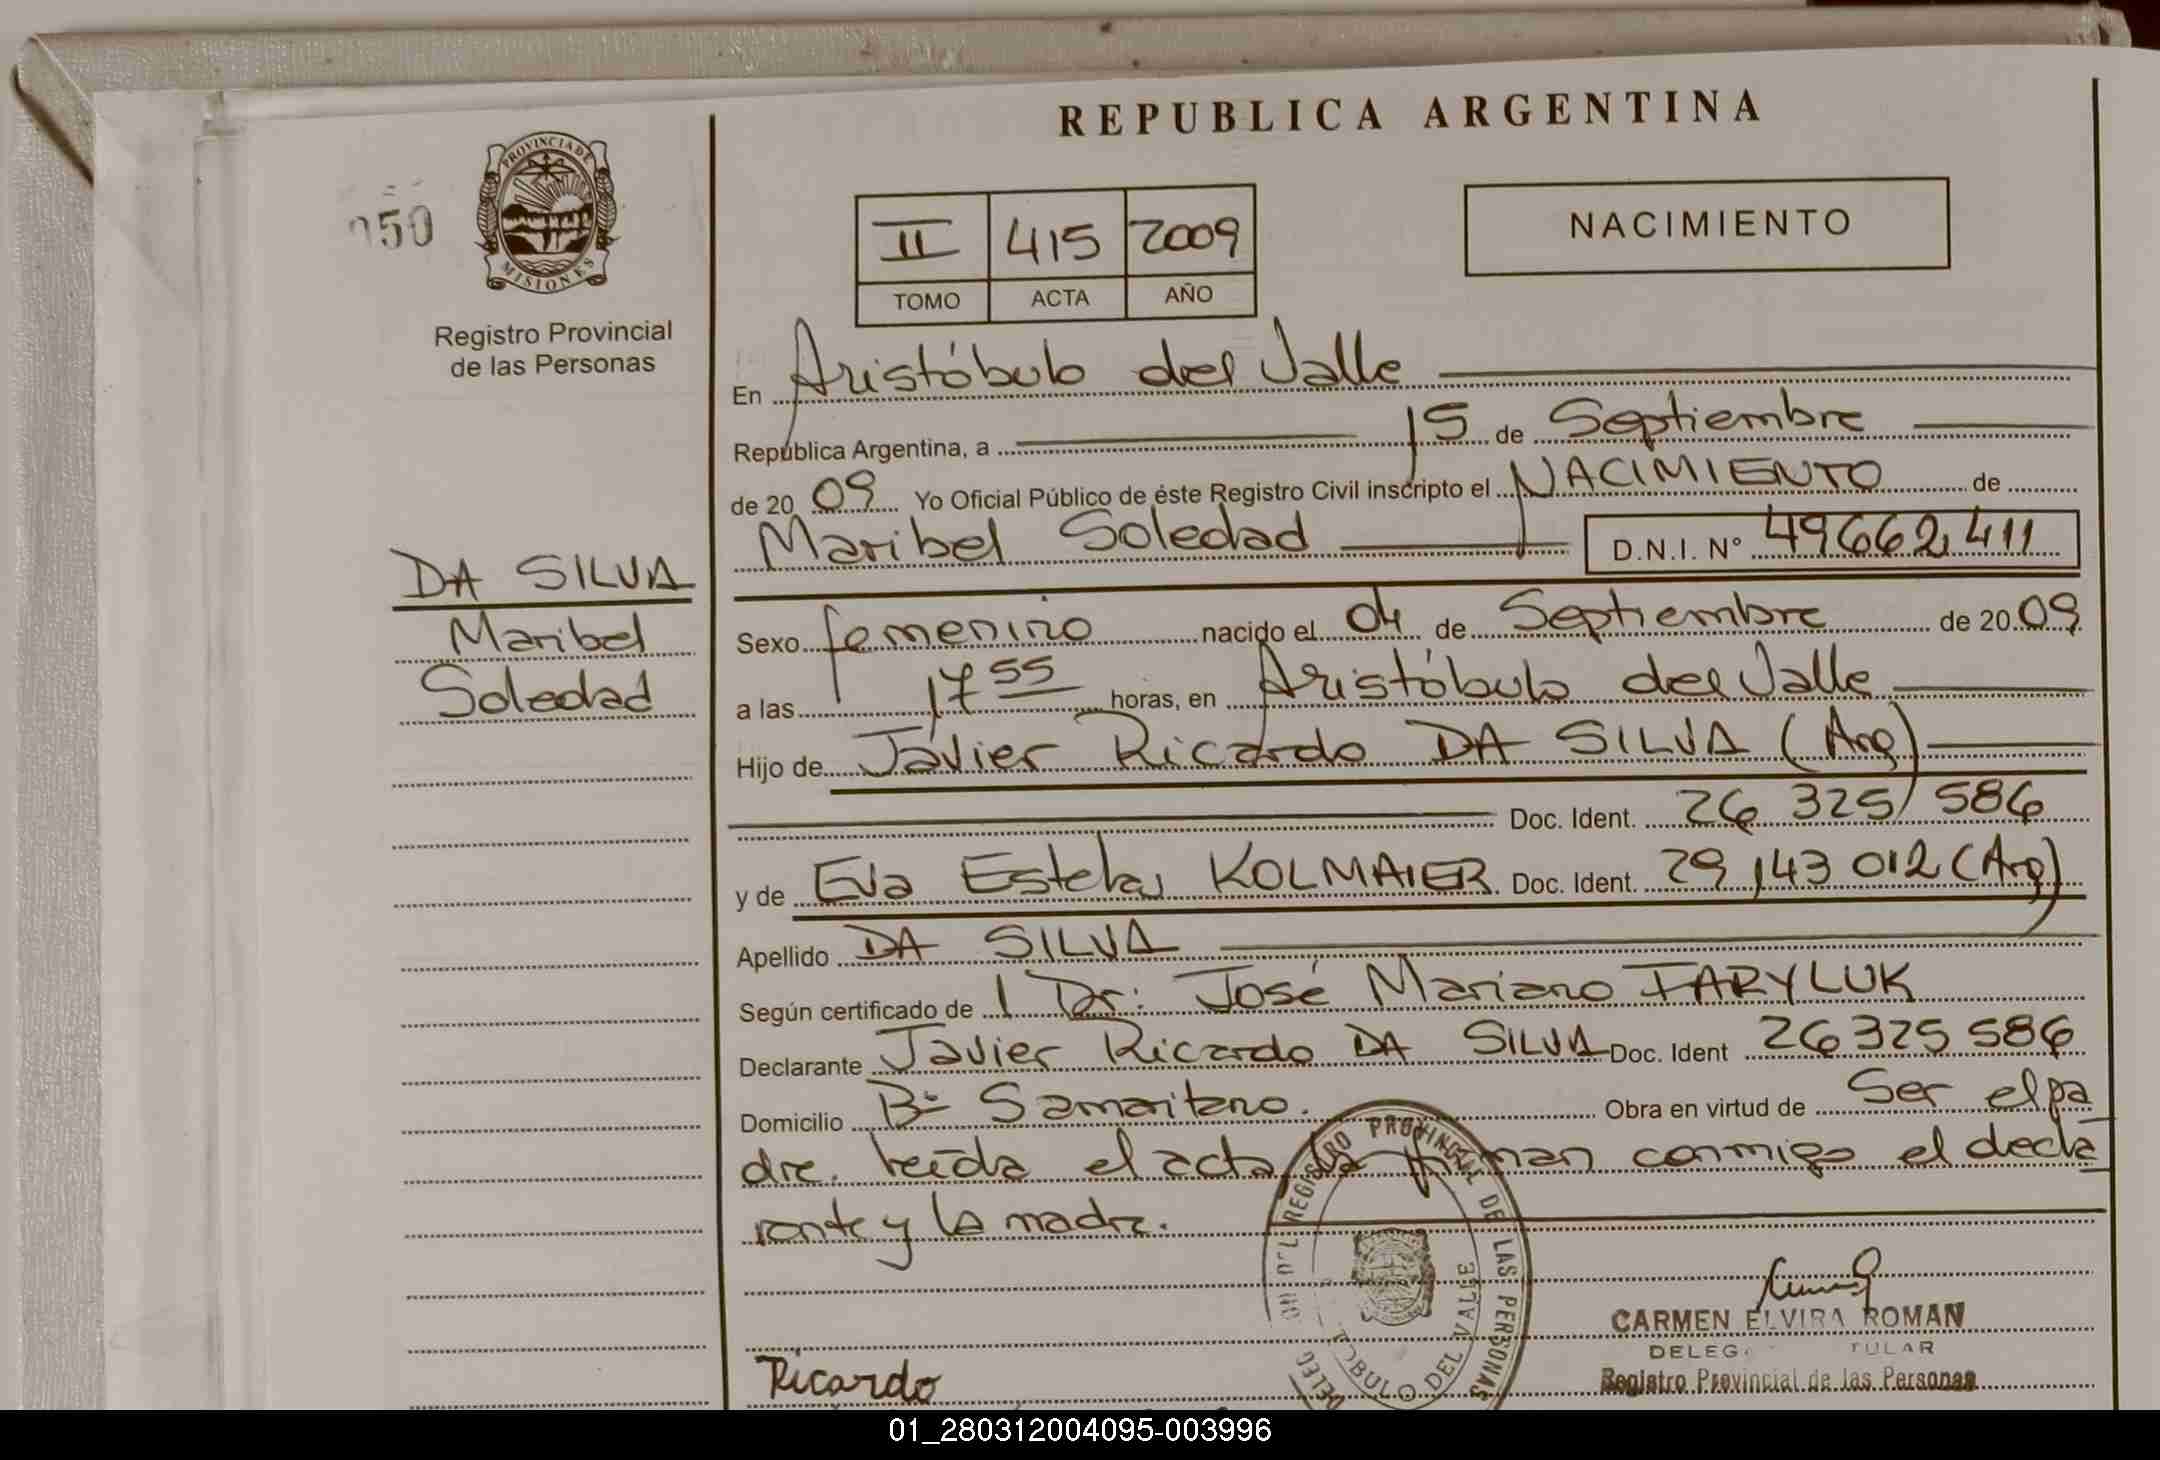 REPUBLICA ARGENTINA
050
PROVINCIA DE
MISIONES
Registro Provincial
de las Personas
II 415 2009
TOMO ACTA AÑO
NACIMIENTO
DA SILVA
Maribel
Soledad
En Aristóbulo del Valle
República Argentina, a 15 de Septiembre
de 20 09 Yo Oficial Público de éste Registro Civil inscripto el NACIMIENTO de
Maribel Soledad D.N.I. N° 49662411
Sexo femenino nacido el 04 de Septiembre de 20 09
a las 17 55 horas, en Aristóbulo del Valle
Hijo de Javier Ricardo DA SILVA (Arg)
Doc. Ident. 26 325 586
y de Eva Estela KOLMAIER Doc. Ident. 29 143 012 (Arg)
Apellido DA SILVA
Según certificado de 1 Dr: José Mariano TARYLUK
Declarante Javier Ricardo DA SILVA Doc. Ident 26 325 586
Domicilio B° Samaritano. Obra en virtud de Ser el pa
dre. Leída el acta, la firman conmigo el decla
rante y la madre.
REGISTRO PROVINCIAL DE LAS PERSONAS
TOBULO DEL VALLE
CARMEN ELVIRA ROMAN
Registro Provincial de las Personas
Ricardo
01_280312004095-003996